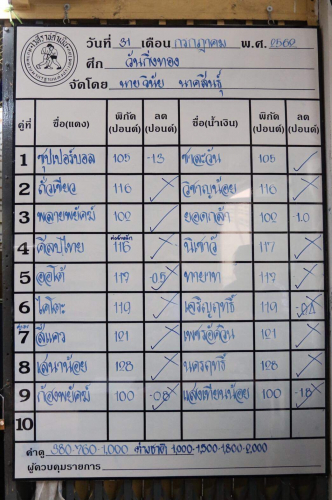 วันที่ 31 เดือน กรกฎาคม พ.ศ. 2562
ศึก วันกิ่งทอง
จัดโดย นายวินัย นาคสินธุ์
คู่ที่ ชื่อ(แดง) พิกัด (ปอนด์) ลด (ปอนด์) ชื่อ(น้ำเงิน) พิกัด (ปอนด์) ลด (ปอนด์)
1 ซุปเปอร์บอล 105 -1.3 ชาละวัน 105
2 ถั่วเขียว 116 วิชาญน้อย 116
3 พลายพยัคฆ์ 102 ยอดกล้า 102 -1.0
4 ศิลป์ไทย 116 นิเชาว์ 117
5 ออโต้ 117 -0.5 ทายาท 117
6 119 เจริญฤทธิ์ 119
7 สีแคว 121 121
8 เสนาน้อย 128 นครฤทธิ์ 128
9 ก้องพยัคฆ์ 100 -0.8 แสงเทียนน้อย 100 -1.8
10
ค่าดู 380-760-1,000 ต่างชาติ 1,000-1,500-1,800-2,000
ผู้ควบคุมรายการ